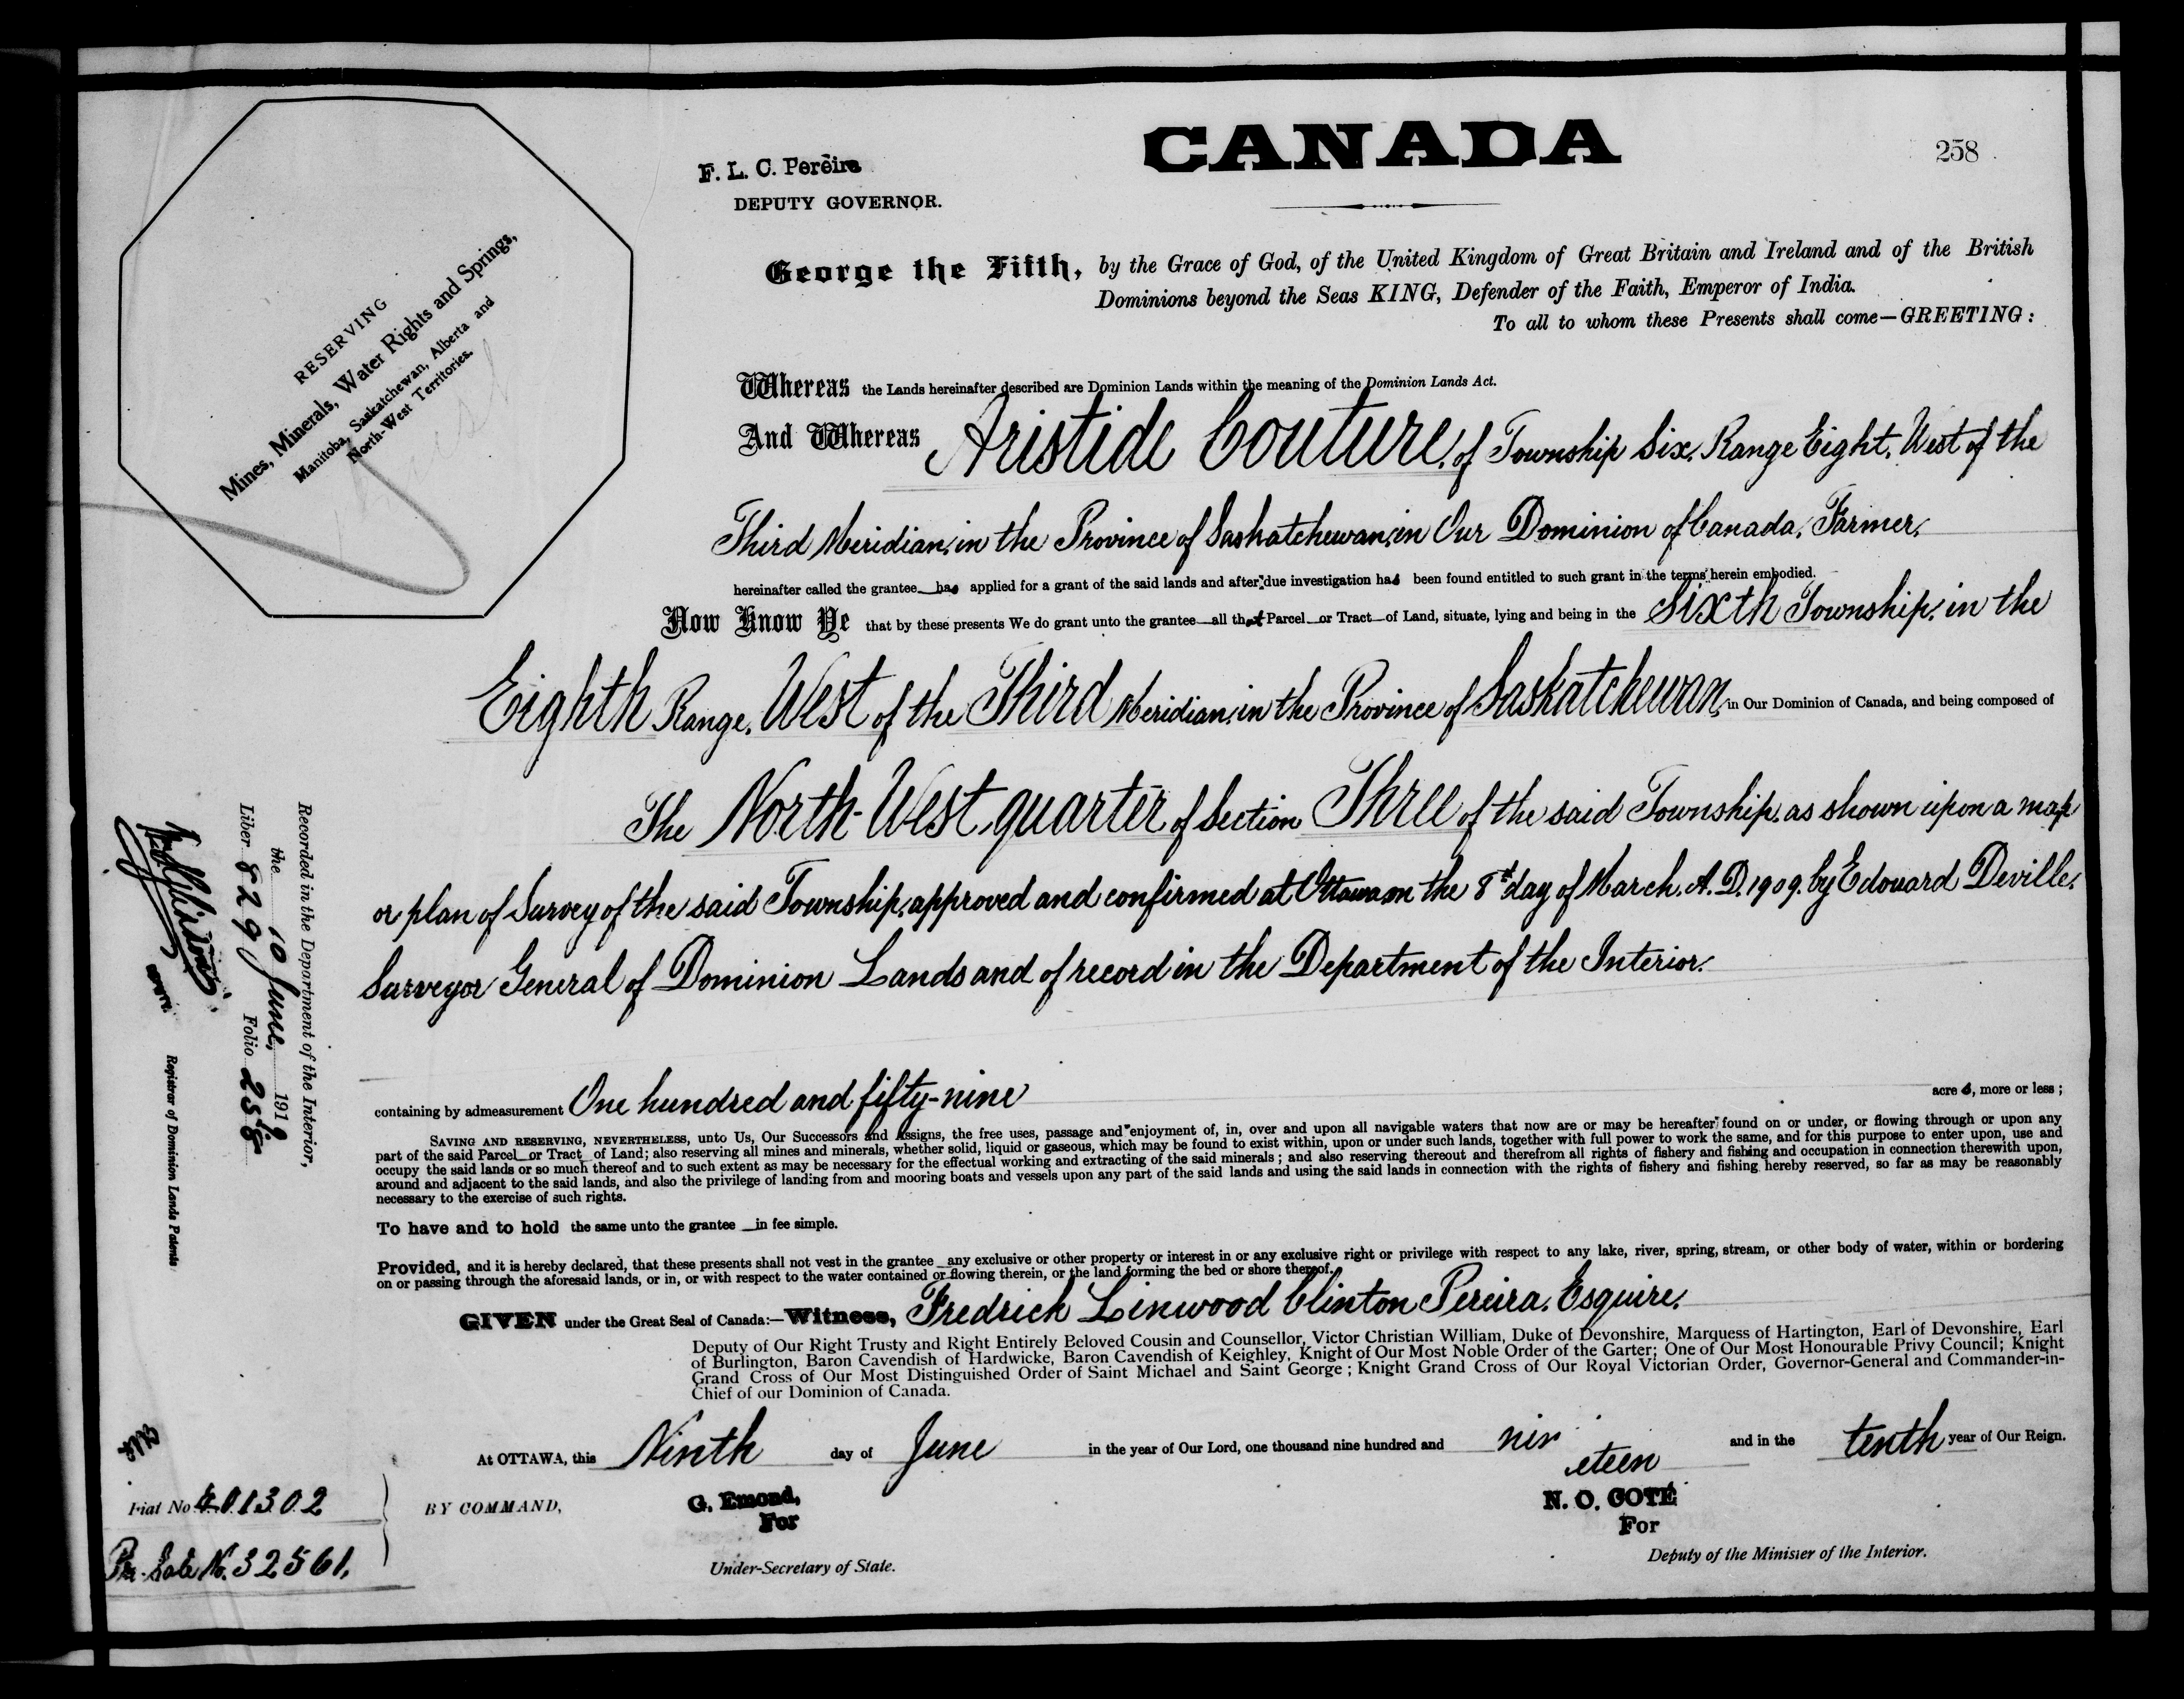 CANADA
258
F. L. C. Pereira
DEPUTY GOVERNOR.
RESERVING
Mines, Minerals, Water Rights and Springs,
Manitoba, Saskatchewan, Alberta and
North-West Territories.
George the Fifth, by the Grace of God, of the United Kingdom of Great Britain and Ireland and of the British
Dominions beyond the Seas KING, Defender of the Faith, Emperor of India.
To all to whom these Presents shall come—GREETING:
Whereas the Lands hereinafter described are Dominion Lands within the meaning of the Dominion Lands Act.
And Whereas Aristide Couture, of Township Six, Range Eight, West of the
Third Meridian, in the Province of Saskatchewan, in Our Dominion of Canada, Farmer,
hereinafter called the grantee has applied for a grant of the said lands and after due investigation has been found entitled to such grant in the terms herein embodied.
Now Know Ye that by these presents We do grant unto the grantee—all that Parcel or Tract—of Land, situate, lying and being in the Sixth Township, in the
Eighth Range, West of the Third Meridian, in the Province of Saskatchewan, in Our Dominion of Canada, and being composed of
The North-West quarter of Section Three of the said Township, as shown upon a map
or plan of Survey of the said Township, approved and confirmed at Ottawa on the 8th day of March, A. D. 1909, by Edouard Deville,
Surveyor General of Dominion Lands and of record in the Department of the Interior.
containing by admeasurement One hundred and fifty-nine acres, more or less;
SAVING AND RESERVING, NEVERTHELESS, unto Us, Our Successors and Assigns, the free uses, passage and enjoyment of, in, over and upon all navigable waters that now are or may be hereafter found on or under, or flowing through or upon any
part of the said Parcel or Tract of Land; also reserving all mines and minerals, whether solid, liquid or gaseous, which may be found to exist within, upon or under such lands, together with full power to work the same, and for this purpose to enter upon, use and
occupy the said lands or so much thereof and to such extent as may be necessary for the effectual working and extracting of the said minerals; and also reserving thereout and therefrom all rights of fishery and fishing and occupation in connection therewith upon,
around and adjacent to the said lands, and also the privilege of landing from and mooring boats and vessels upon any part of the said lands and using the said lands in connection with the rights of fishery and fishing hereby reserved, so far as may be reasonably
necessary to the exercise of such rights.
To have and to hold the same unto the grantee in fee simple.
Provided, and it is hereby declared, that these presents shall not vest in the grantee any exclusive or other property or interest in or any exclusive right or privilege with respect to any lake, river, spring, stream, or other body of water, within or bordering
on or passing through the aforesaid lands, or in, or with respect to the water contained or flowing therein, or the land forming the bed or shore thereof.
GIVEN under the Great Seal of Canada:—Witness, Fredrick Linwood Clinton Pereira, Esquire,
Deputy of Our Right Trusty and Right Entirely Beloved Cousin and Counsellor, Victor Christian William, Duke of Devonshire, Marquess of Hartington, Earl of Devonshire, Earl
of Burlington, Baron Cavendish of Hardwicke, Baron Cavendish of Keighley, Knight of Our Most Noble Order of the Garter; One of Our Most Honourable Privy Council; Knight
Grand Cross of Our Most Distinguished Order of Saint Michael and Saint George; Knight Grand Cross of Our Royal Victorian Order, Governor-General and Commander-in-
Chief of our Dominion of Canada.
At OTTAWA, this Ninth day of June in the year of Our Lord, one thousand nine hundred and nineteen and in the tenth year of Our Reign.
BY COMMAND,
G. Emond,
For
Under-Secretary of State.
N. O. COTÉ
For
Deputy of the Minister of the Interior.
Recorded in the Department of the Interior,
the 10 June, 1919
Liber 829 Folio 258
Registrar of Dominion Lands Patents
Fiat No 401302
Pr. Sale No. 32561.